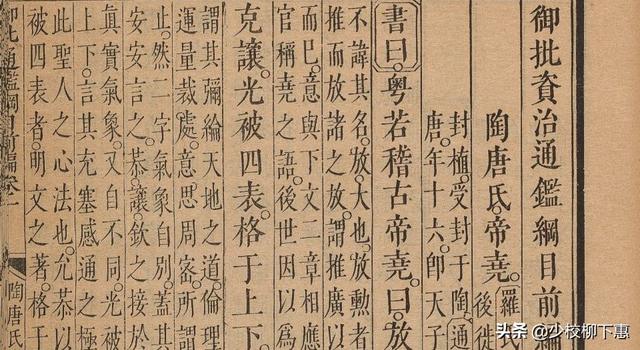 御批資治通鑑綱目前編
陶唐氏。帝堯。羅
後徙
封植。受封于陶。通
唐。年十六。即天子
書曰。粵若稽古帝堯。曰放
不諱其名。放。大也。放勲者
推而放諸之放。謂推廣以
而已。意與下文二章相應
官稱堯之語。後世因以爲
克讓。光被四表。格于上下。
謂其彌綸天地之道。倫理
運量裁處。意思周宻。所謂
止。然二字氣象自別。蓋其
安安言之。恭讓。欽之接於
真實氣象。又自不同。光
上下。言其充塞感通之極
此聖人之心法也。允恭以
被四表者。明文之著。格于
御批通鑑綱目前編卷一
陶唐氏
头条 @少校柳下惠